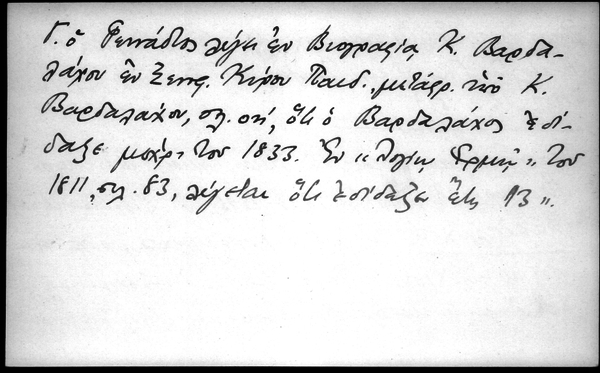 Γ. ὁ Γεννάδιος λέγει ἐν Βιογραφίᾳ Κ. Βαρδα-
λάχου ἐν Ξενοφ. Κύρου Παιδ., μετάφρ. ὑπὸ Κ.
Βαρδαλάχου, σελ. ση', ὅτι ὁ Βαρδαλάχος ἐδί-
δαξε μέχρι τοῦ 1833. Ἐν «Λογίῳ Ἑρμῇ» τοῦ
1811, σελ. 83, λέγεται ὅτι ἐδίδαξεν ἔτη 13».